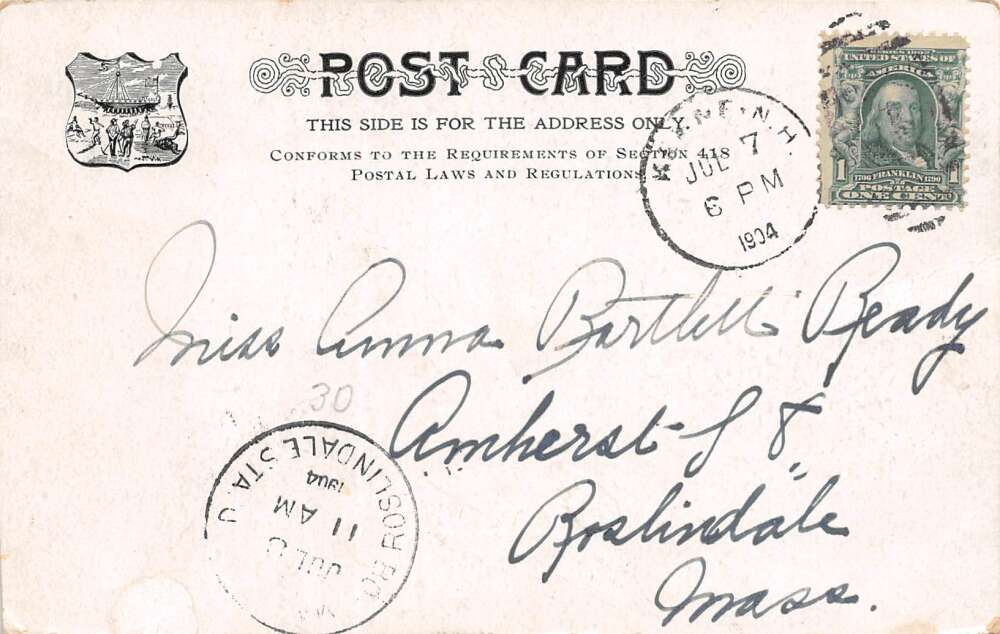 POST CARD
THIS SIDE IS FOR THE ADDRESS ONLY.
CONFORMS TO THE REQUIREMENTS OF SECTION 418
POSTAL LAWS AND REGULATIONS.
KEENE, N.H.
JUL 7
6 PM
1904
UNITED STATES OF
AMERICA
1
1706 FRANKLIN 1790
POSTAGE
ONE CENT
Miss Anna Bartlett Ready
Amherst St
Roslindale
Mass.
30
ROSLINDALE STA.
1904
11 AM
JUL 8